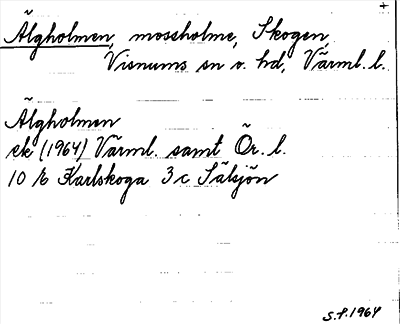 +
Älgholmen, mosseholme, Skogen,
Visnums sn o. hd, Värml. l.
Älgholmen
ek (1964) Värml. samt Ör. l.
10 E Karlskoga 3 c Sälsjön
S.F. 1964